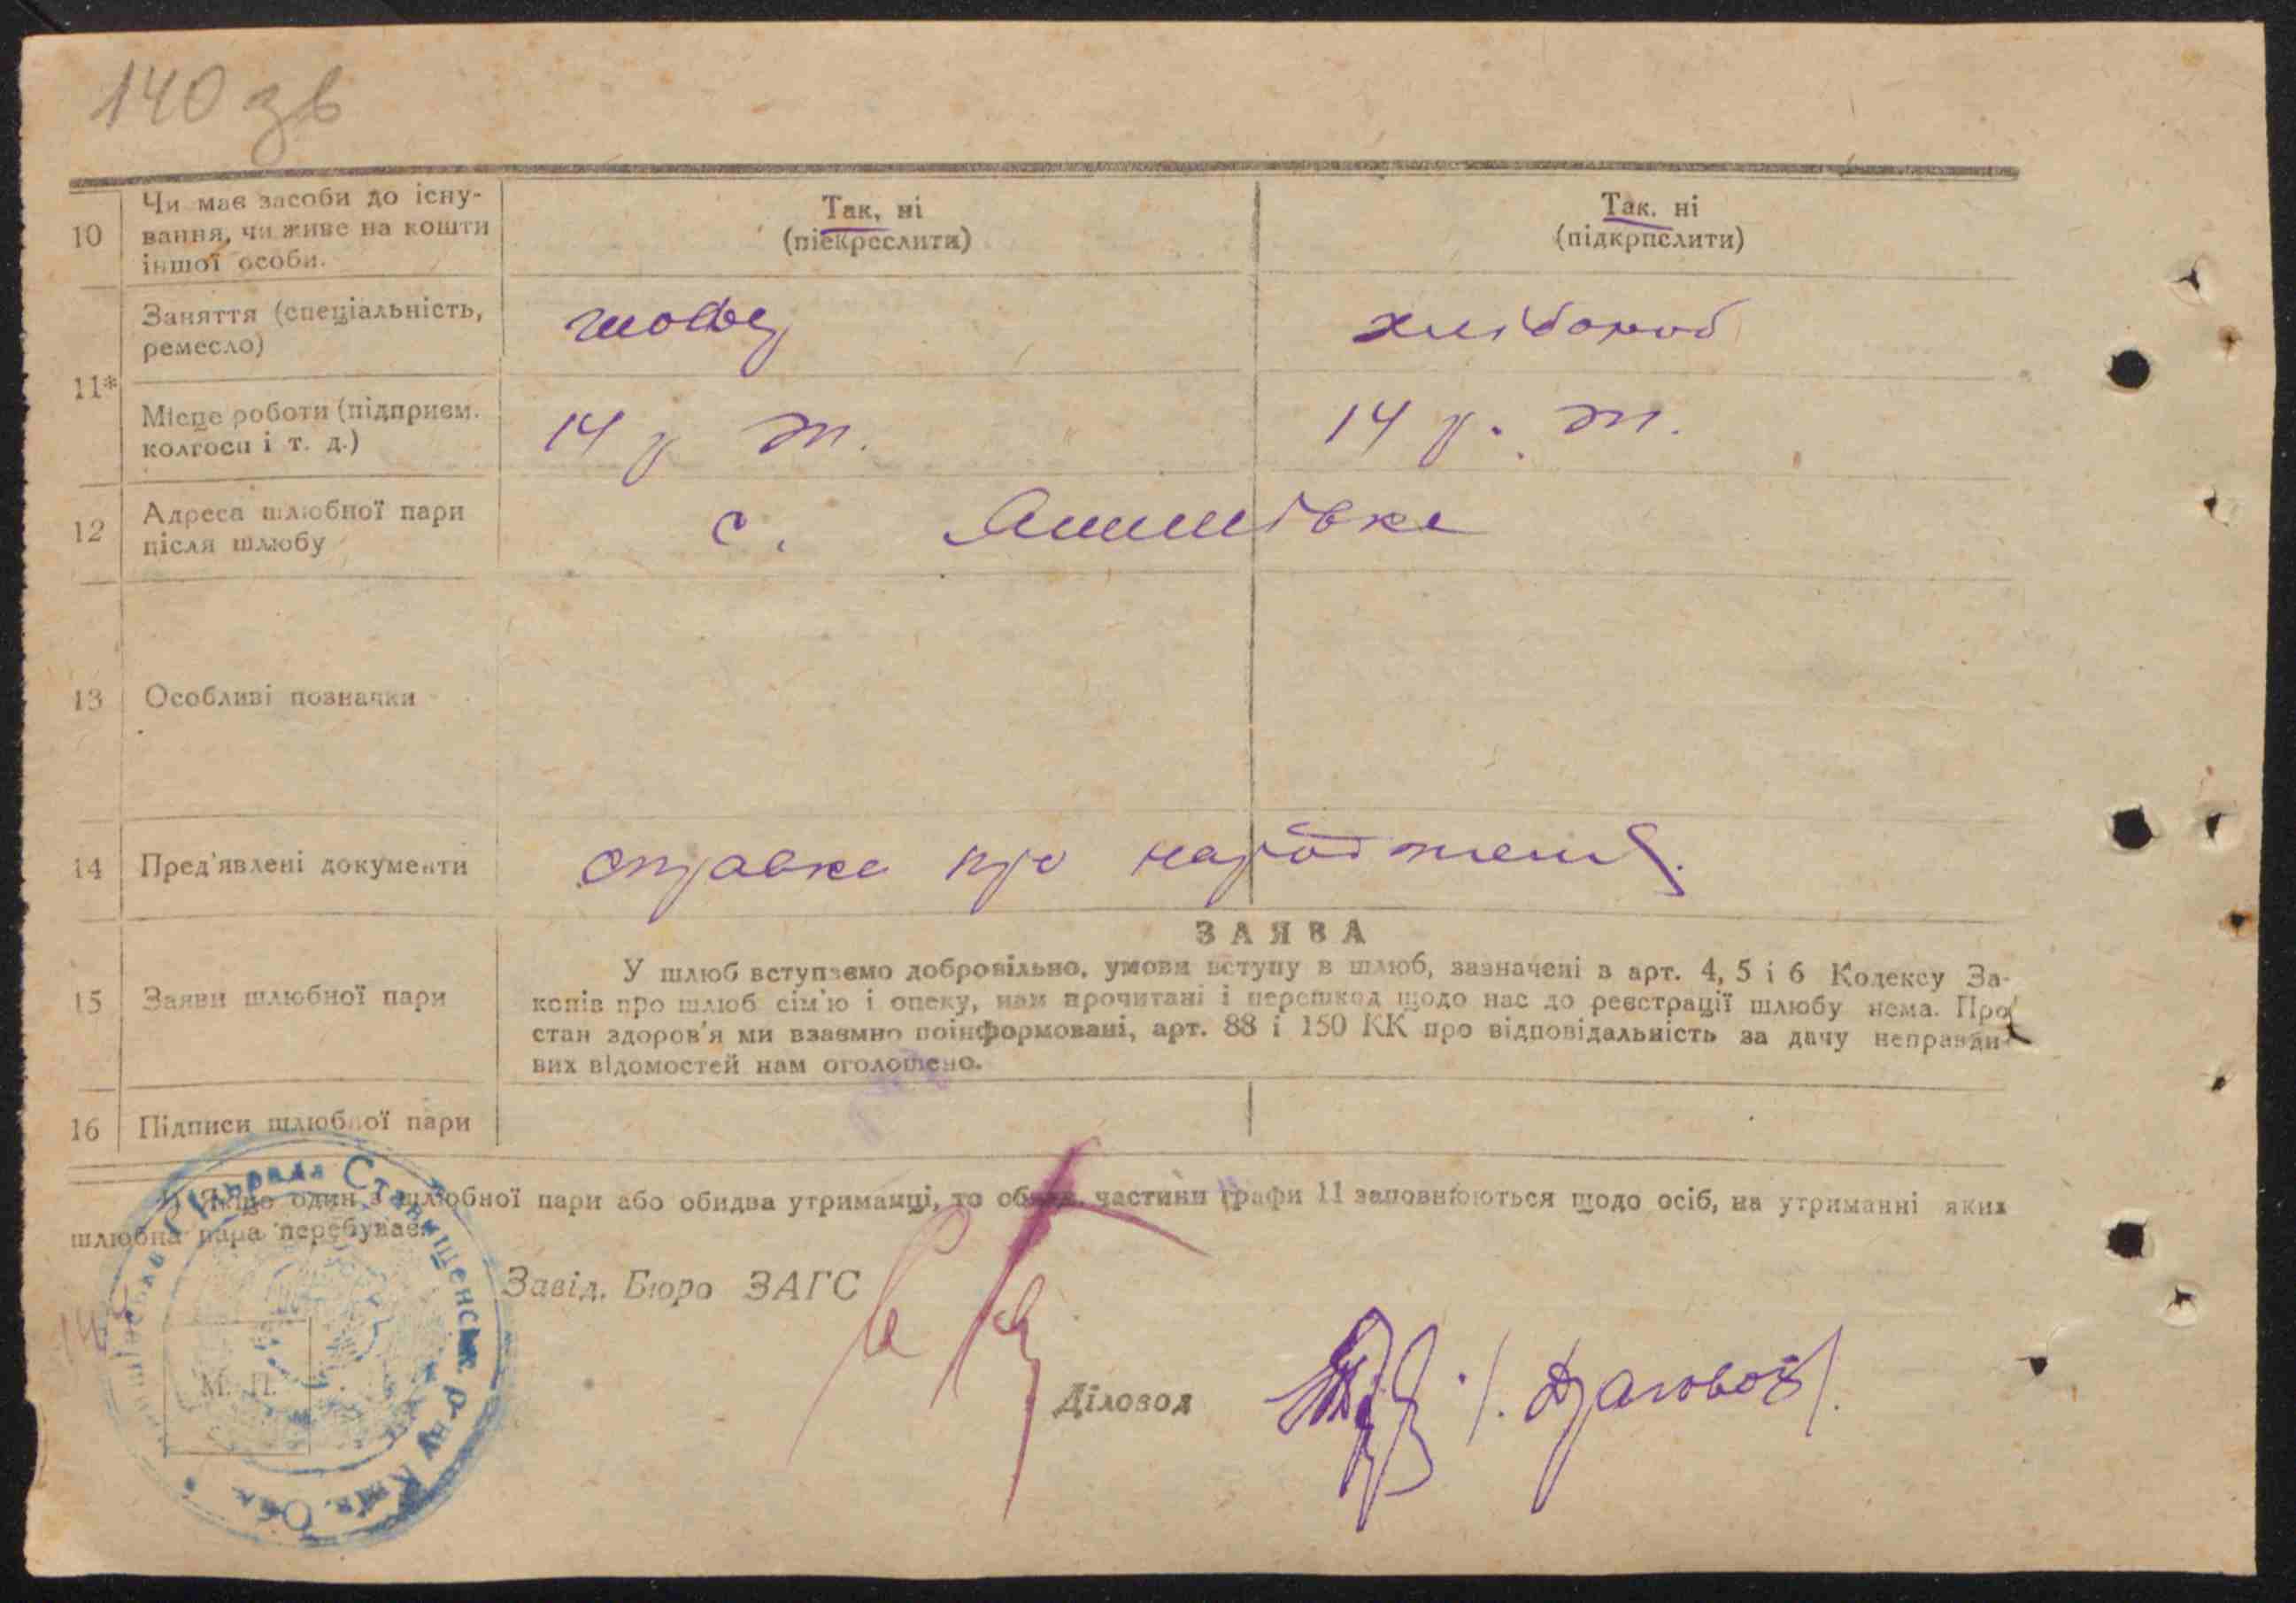 140 зв
10 Чи має засоби до існу-
вання, чи живе на кошти
іншої особи.
Так, ні
(піекреслити)
Так. ні
(підкрпслити)
11*
Заняття (спеціальність,
ремесло)
швець
хлібороб
Місце роботи (підприєм.
колгосп і т. д.)
14 р т.
14 р. т.
12 Адреса шлюбної пари
після шлюбу
с.
13 Особливі позначки
14 Пред'явлені документи
справка про народження.
ЗАЯВА
15 Заяви шлюбної пари
У шлюб вступаємо добровільно, умови вступу в шлюб, зазначені в арт. 4, 5 і 6 Кодексу За-
конів про шлюб сім'ю і опеку, нам прочитані і перешкод щодо нас до реєстрації шлюбу нема. Про
стан здоров'я ми взаємно поінформовані, арт. 88 і 150 КК про відповідальність за дачу неправди-
вих відомостей нам оголошено.
16 Підписи шлюбної пари
Якщо один з шлюбної пари або обидва утриманці, то обидві частини графи 11 заповнюються щодо осіб, на утриманні яких
шлюбна пара перебуває.
Завід. Бюро ЗАГС
М. П.
Діловод
Сільрада Ставищенськ. р-ну Київ. Обл.